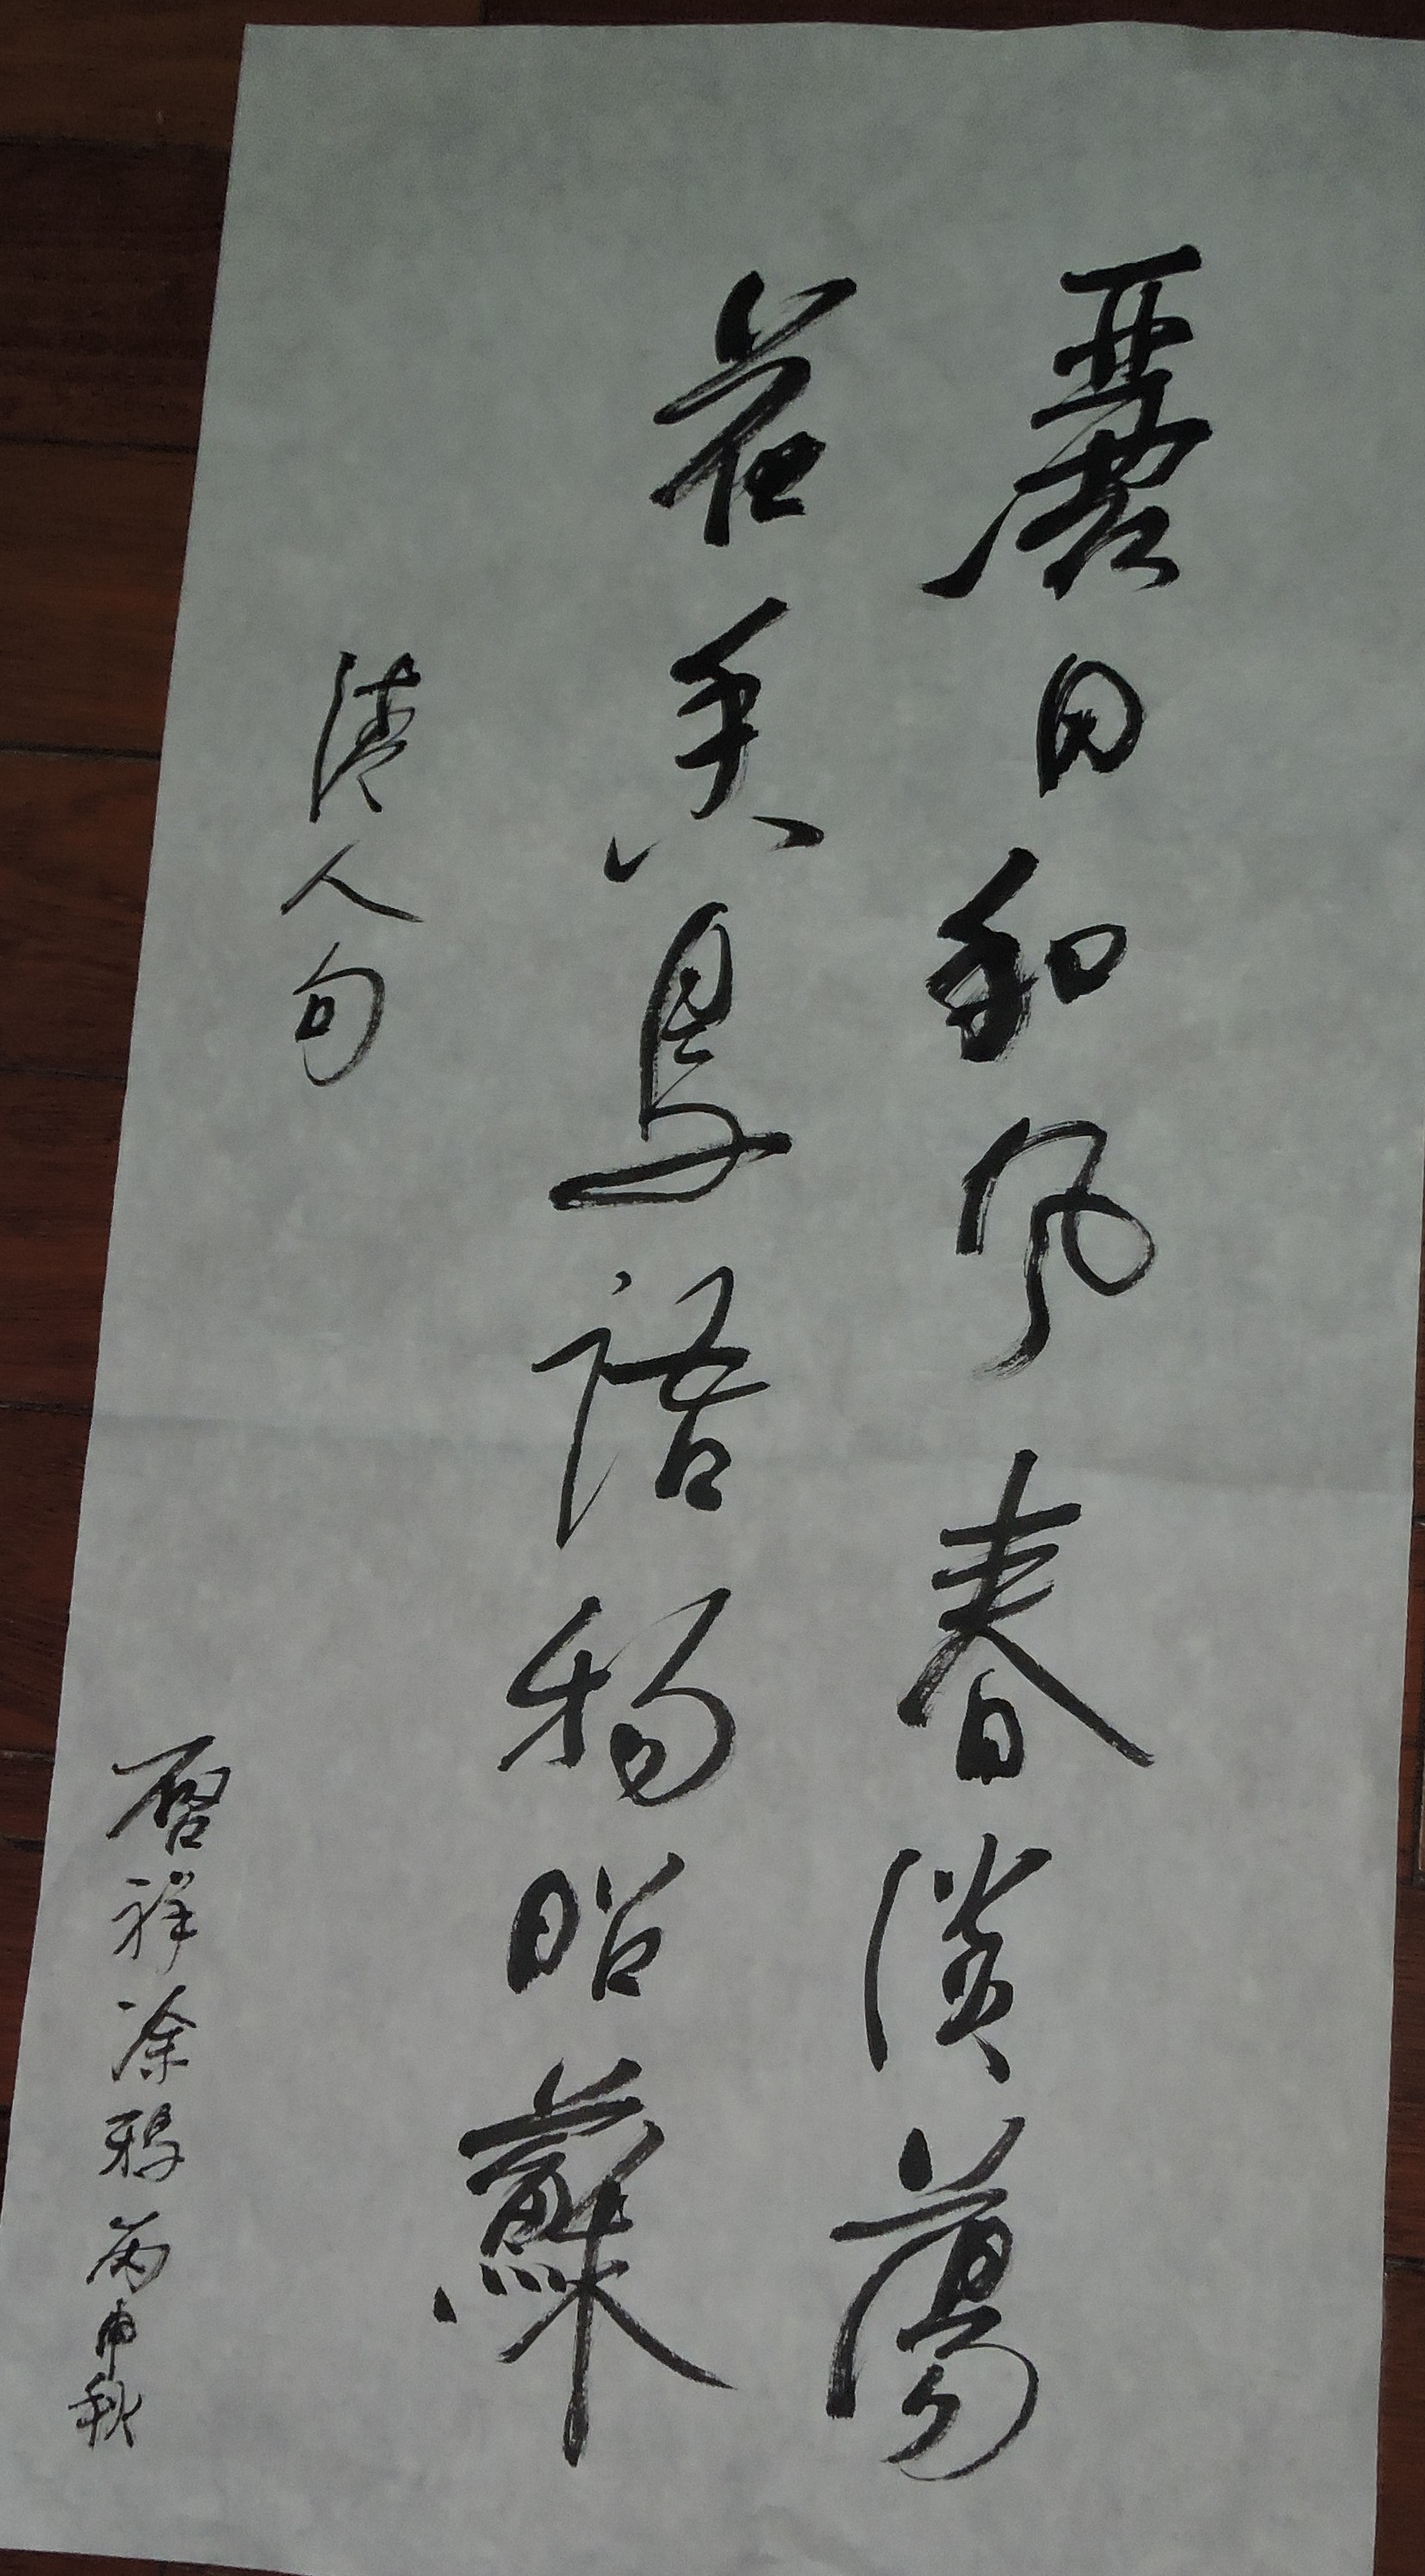 麗日和风春淡蕩
花香鳥語物昭蘇
清人句
啓祥涂鸦丙申秋